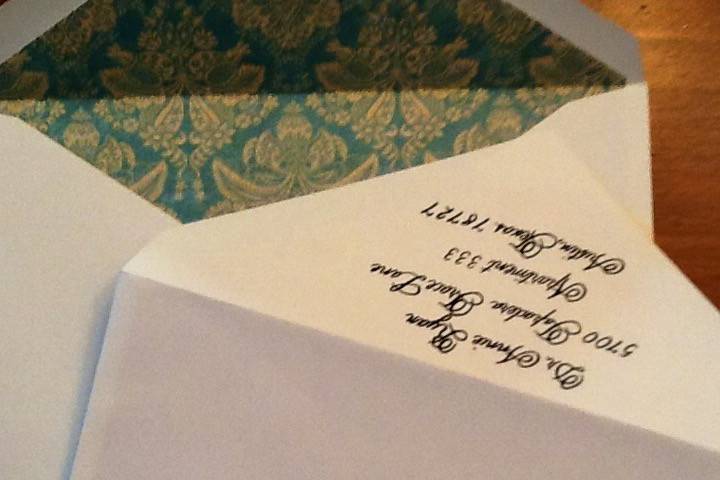 Dr. Annie Ryan
5700 Tapadera Trace Lane
Apartment 333
Austin, Texas 78727